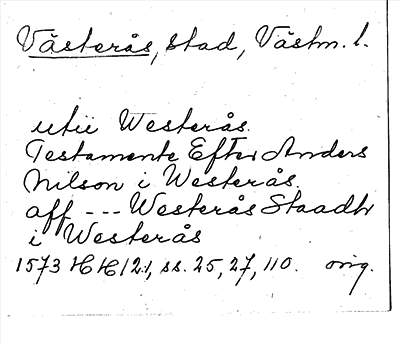 Västerås, stad, Västm. l.
utii Westerås.
Testamente Efter Anders
Nilson i Westerås.
aff --- Westerås Staadh
i Westerås
1573 HH 121, ss. 25, 27, 110. orig.